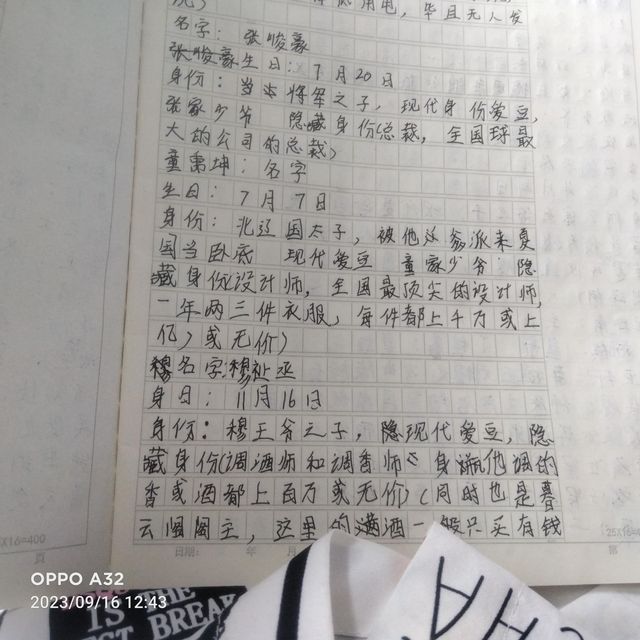 用电，毕且无人发
名字：张峻豪
张峻豪生日：7月20日
身份：当 将军之子，现代身份爱豆，
张家少爷 隐藏身份总裁，全国球最
大的公司的总裁)
童禹坤：名字
生日：7月7日
身份：北辽国太子，被他 爹派来夏
国当卧底 现代爱豆 童家少爷 隐
藏身份设计师，全国最顶尖的设计师，
一年两三件衣服，每件都上千万或上
亿)或无价)
穆名字穆祉丞
身日：11月16日
身份：穆王爷之子，隐现代爱豆，隐
藏身份(调酒师和调香师 身 他调的
香或酒都上百万或无价)(同时也是暮
云阁阁主，这里的 酒一般只买有钱
25X16=400
頁
日期： 年 月
(25X16=400
第
OPPO A32
2023/09/16 12:43
IS THE
ST BREAK
CHA